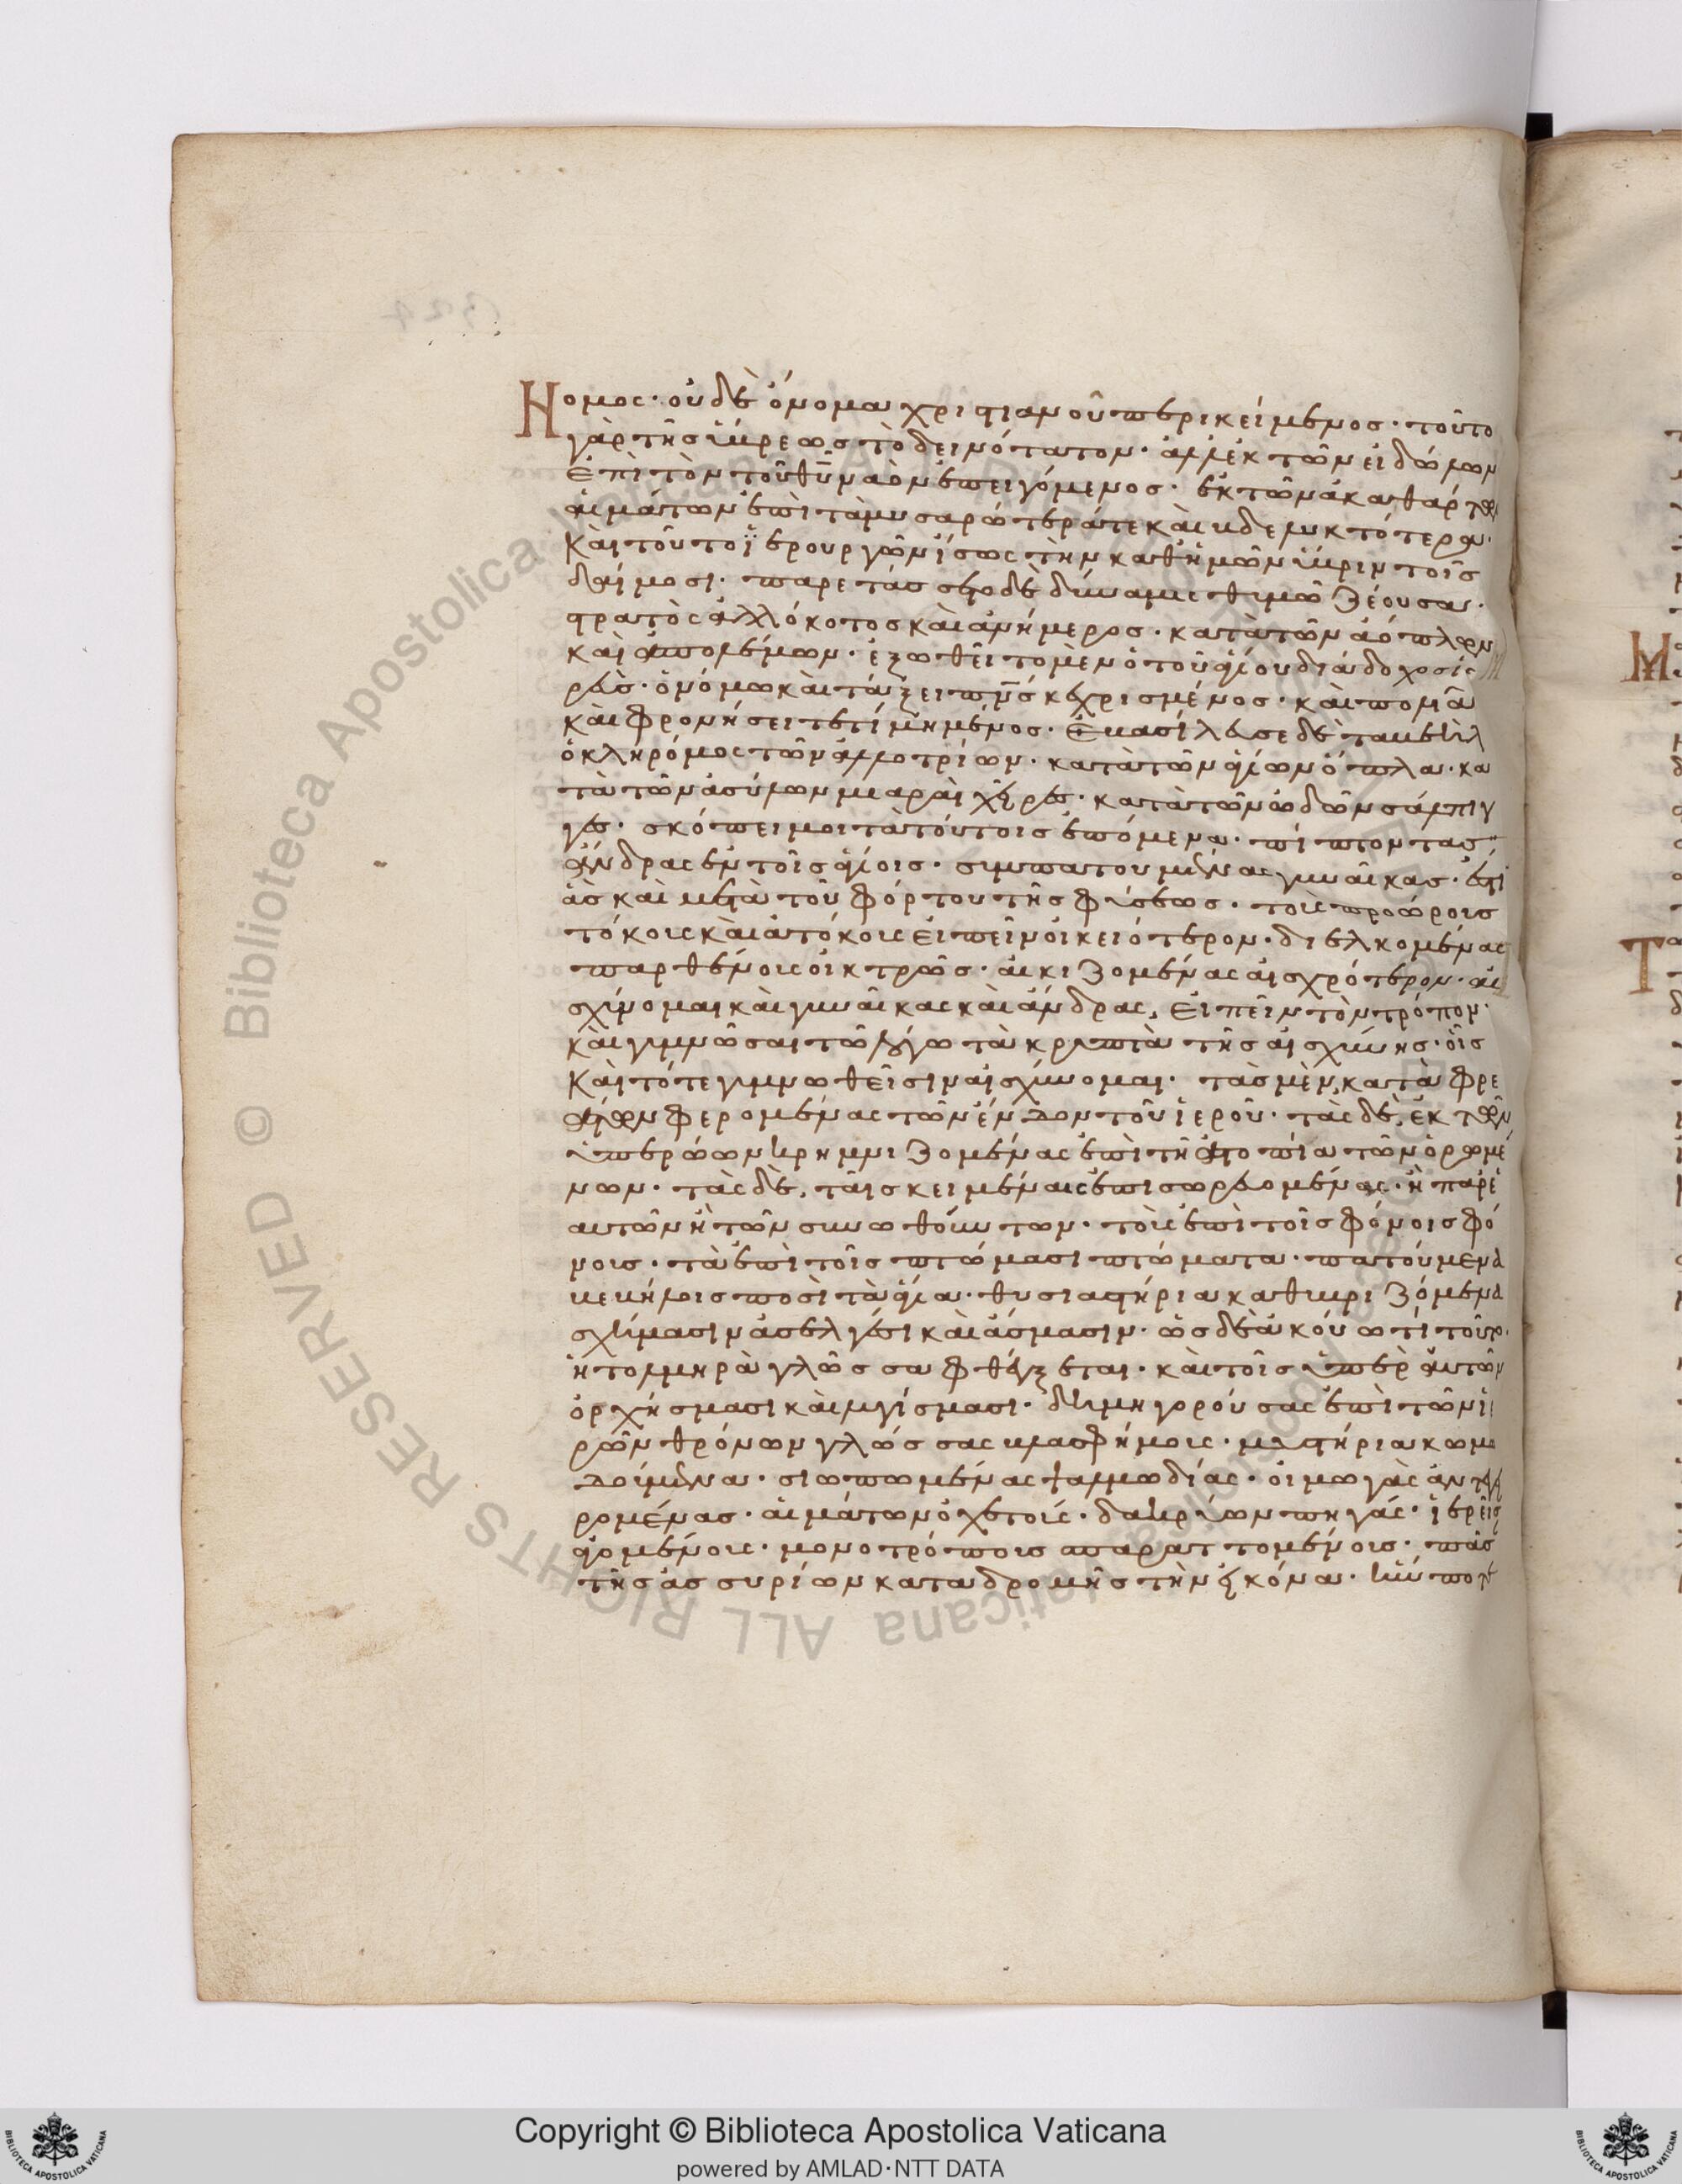 Νομος· οὐδὲ ὄνομα χριστιανοῦ περικείμενος· τοῦτο
γὰρ τῆς ὕβρεως τὸ δεινότατον· ἀλλ' ἐκ τῶν εἰδώλων
ἐπὶ τὸν τοῦ θῦ ναὸν ἐπειγόμενος· ἐκ τῶν ἀκαθάρτων
αἱμάτων ἐπὶ τὰ μυσαρώτερά τε καὶ βδελυκτότερα·
καὶ τοῦτο ἱερουργῶν ἴσως τὴν καθ' ἡμῶν ὕβριν τοῖς
δαίμοσι· παρετάσσετο δὲ δύναμις θυμῶ ζέουσα·
στρατὸς ἀλλόκοτος καὶ ἀνήμερος· κατὰ τῶν ἀόπλων
καὶ ἀπολέμων· ἐξωθεῖτο μὲν ὁ τοῦ ἁγίου διάδοχος ἱε
ρεὺς· ὁ νόμω καὶ τάξει πνς κεχρισμένος· καὶ πολιᾶ
καὶ φρονήσει τετιμημένος· ἐβασίλευσε δὲ ταβεὴλ
ὁ κληρόμος τῶν ἀλλοτρίων· κατὰ τῶν ἁγίων ὅπλα· κα
τὰ τῶν ἀσύλων μιαραὶ χεῖρες· κατὰ τῶν ὠδῶν σάλπιγ
γες· σκόπει μοι τὰ τούτοις ἑπόμενα· πίπτοντας
ἄνδρας ἐν τοῖς ἁγίοις· συμπατουμένας γυναῖκας· ἔστι
ἃς καὶ μετὰ τοῦ φόρτου τῆς φύσεως· τοῖς προώροις
τόκοις καὶ ἀτόκοις εἰπεῖν οἰκειότερον· διελκομένας
παρθένους οἰκτρῶς· αἰκιζομένας αἰσχρότερον· αἰ
σχύνομαι καὶ γυναῖκας καὶ ἄνδρας, εἰπεῖν τὸν τρόπον·
καὶ γυμνῶσαι τῶ λόγω τὰ κρυπτὰ τῆς αἰσχύνης· οἷς
καὶ τότε γυμνωθεῖσιν αἰσχύνομαι· τὰς μὲν, κατὰ φρε
άτων φερομένας τῶν ἔνδον τοῦ ἱεροῦ· τὰς δὲ, ἐκ τῶν
ὑπερώων κρημνιζομένας ἐπὶ τῆ ἀτοπία τῶν ὁρωμέ
νων· τὰς δὲ, ταῖς κειμέναις ἐπισωρευομένας· ἢ παρ' ἑ
αυτῶν ἢ τῶν συνωθούντων· τοὺς ἐπὶ τοῖς φόνοις φό
νους· τὰ ἐπὶ τοῖς πτώμασι πτώματα· πατούμενα
βεβήλοις ποσὶ τὰ ἅγια· θυσιαστήρια καθυβριζόμενα
σχήμασιν ἀσελγέσι καὶ ἄσμασιν· ὡς δὲ ἀκούω τι τοῦτο·
ἡ τολμηρὰ γλῶσσα φθέγξεται· καὶ τοῖς ὑπὲρ αὐτῶν
ὀρχήσμασι καὶ λυγίσμασι· δημηγορούσας ἐπὶ τῶν ἱε
ρῶν θρόνων γλώσσας βλασφήμους· μυστήρια κωμω
δούμενα· σιωπωμένας ψαλμωδίας· οἰμωγὰς ἀντεγει
ρομένας· αἱμάτων ὀχετούς· δακρύων πηγάς· ἱερεῖς
ἀγομένους· μονοτρόπους σπαραττομένους· πᾶσ
τῆς ἀσσυρίων καταδρομῆς τὴν εἰκόνα· ἥν ποτε